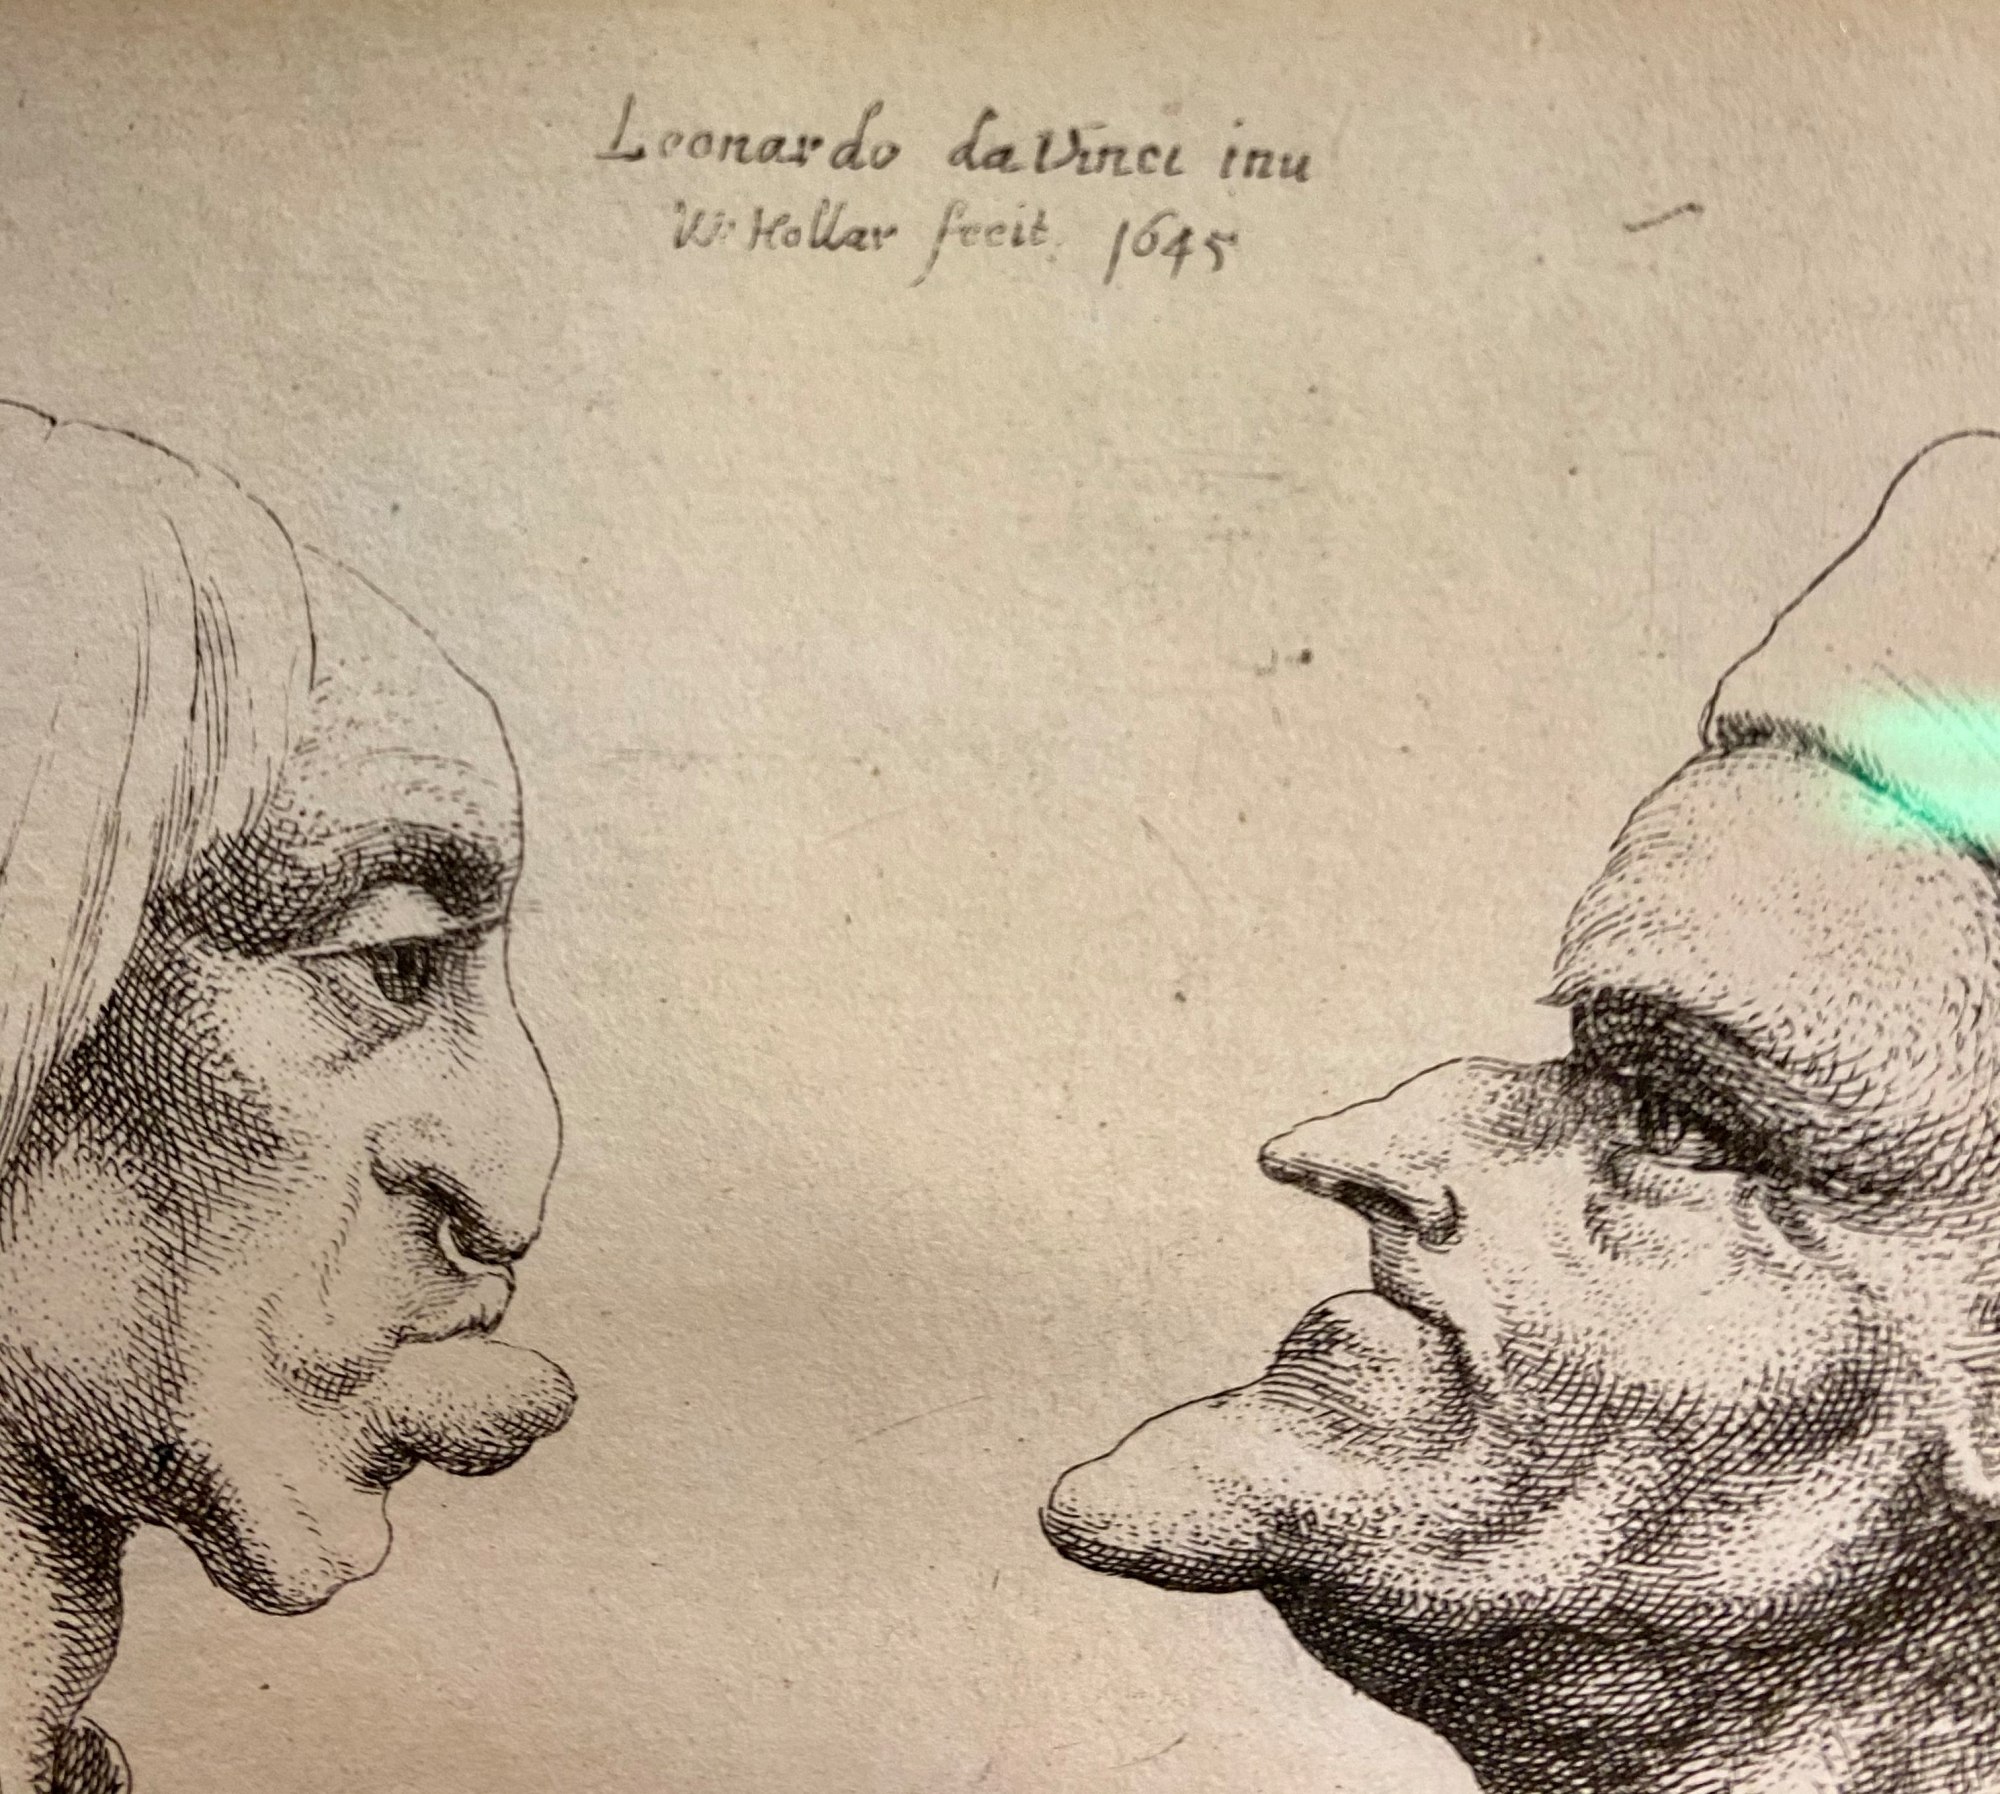 Leonardo da Vinci inu
W: Hollar fecit. 1645